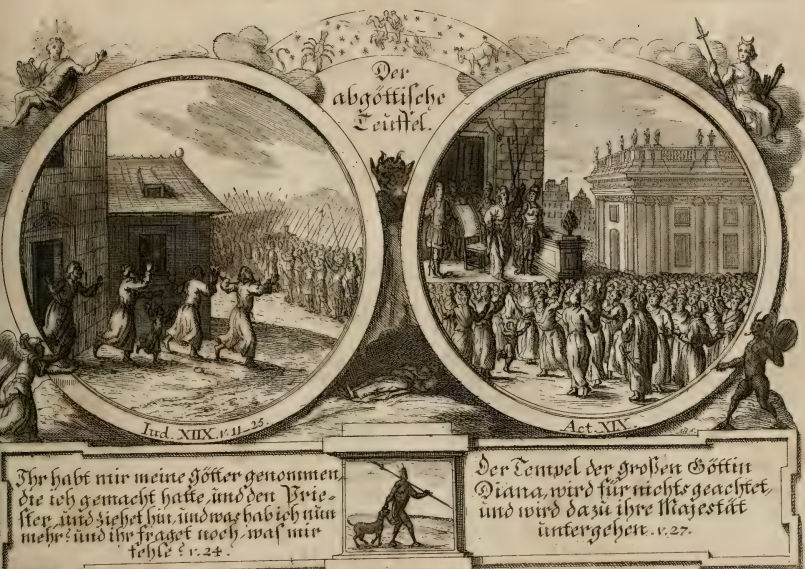 Der
abgöttische
Teuffel.
Iud. XIIX. v. 11-25.
Act. XIX.
Ihr habt mir meine Götter genommen,
die ich gemacht hatte, und den Prie-
ster, und ziehet hin, und was hab ich nun
mehr? und ihr fraget noch, was mir
fehle? v. 24.
Der Tempel der großen Göttin
Diana, wird für nichts geachtet,
und wird dazu ihre Majestät
untergehen. v. 27.